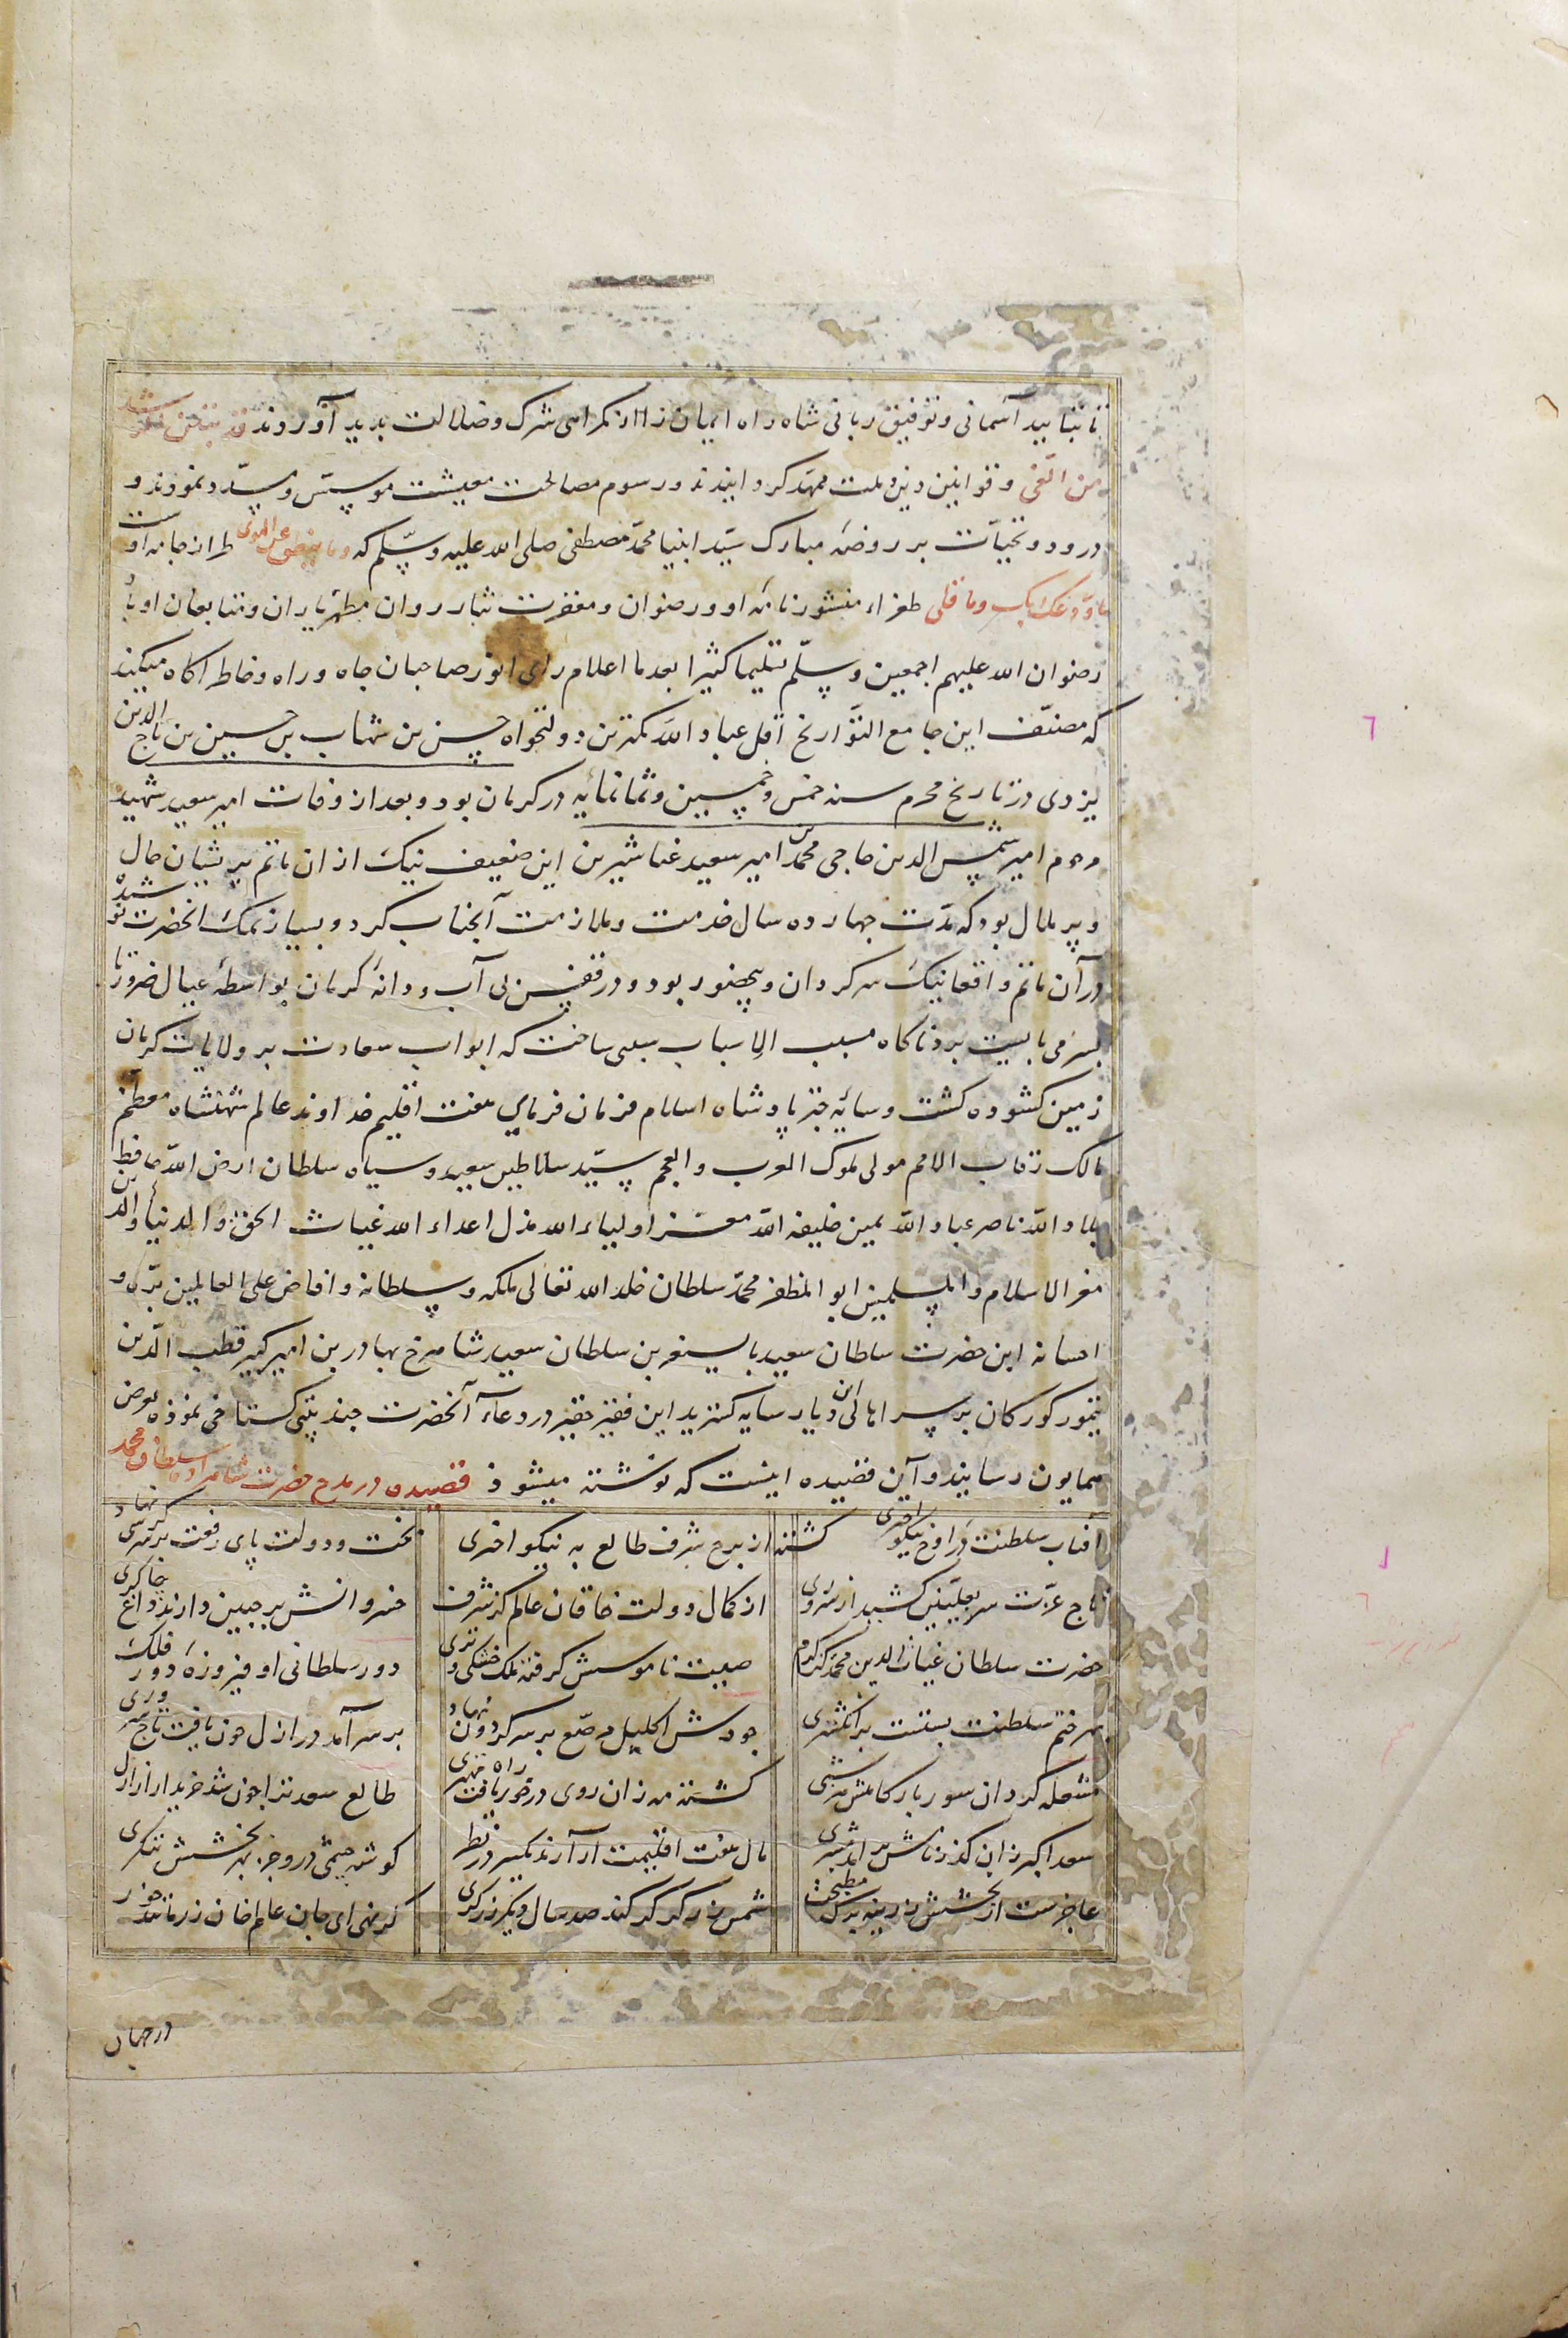 تا بتایید آسمانی و توفیق ربانی شاه راه ایمان را از کمراهی شرک و ضلالت بدید آوردند قد تبین الرشد
من الغی و قوانین دین و ملت ممهد کردانیدند و رسوم مصالحت معیشت موسس و مسدد نمودند و
درود و تحیات بر روضه مبارک سید انبیا محمد مصطفی صلی الله علیه وسلم که وما ینطق عن الهوی طراز جامه اوست
ما ودعک ربک وما قلی طغراء منشور نامه او و رضوان و مغفرت نثار روان مطهر یاران و متابعان او باد
رضوان الله علیهم اجمعین وسلم تسلیما کثیرا بعدما اعلام رای انور صاحبان جاه و راه و خاطر اکاه میکند
که مصنف این جامع التواریخ اقل عباد الله کمترین دولتخواه حسن بن شهاب بن حسین بن تاج الدین
یزدی در تاریخ محرم سنه خمس و خمسین و ثمانمائه در کرمان بود و بعد از وفات امیر سعید شهید
مرحوم امیر شمس الدین حاجی محمد بن امیر سعید غناشیرین این ضعیف نیک از آن ماتم پریشان حال
و پر ملال بود که مدت چهارده سال خدمت و ملازمت آنجناب کرد و بسیار نمک آنحضرت خورده شد
در آن ماتم و اقعا نیک سرکردان و بیحضور بود و در قفس بی آب و دانه کرمان بواسطه عیال ضرورتا
بسر می بایست برد ناکاه مسبب الاسباب سببی ساخت که ابواب سعادت بر ولایات کرمان
زمین کشوده کشت و سایه چتر پادشاه اسلام فرمان فرمای هفت اقلیم خداوند عالم شهنشاه معظم
مالک رقاب الامم مولی ملوک العرب والعجم سید سلاطین سعید و سیاه سلطان ارض الله حافظ
بلاد الله ناصر عباد الله یمین خلیفه الله معز اولیاء الله مذل اعداء الله غیاث الحق والدنیا والدین
مغز الاسلام والمسلمین ابو المظفر محمد سلطان خلد الله تعالی ملکه وسلطانه وافاض علی العالمین بره و
احسانه ابن حضرت سلطان سعید بایسنغر بن سلطان سعید شاهرخ بهادر بن امیر کبیر قطب الدین
تیمور کورکان بر سر اهالی این دیار سایه کسترید این فقیر حقیر در دعاء آنحضرت چند بیتی کستاخی نموده بعرض
همایون رسانید و آن قصیده اینست که نوشته میشود قصیده در مدح حضرت شاهزاده سلطان محمد
آفتاب سلطنت در اوج نیکو اختری کشته از برج شرف طالع به نیکو اختری تخت و دولت پای رفعت بر سر کرسی نهاد
تاج عزت سر بعلیین کشید از سروری از کمال دولت خاقان عالم کز شرف خسروانش بر جبین دارند داغ چاکری
حضرت سلطان غیاث الدین محمد کز کرم صیت ناموسش کرفته ملک خشکی و تری دور سلطانی او فیروزه دور فلک
بهر ختم سلطنت بستت بر انکشتری جودش اکلیل مرصع بر سر کردون نهاد بر سر آمد در ازل چون یافت تاج سروری
مشعله کردان سور بارکاهش شد شبی کشته مه زان روی در خور یافت راه مهتری طالع سعد ترا چون شد خریدار از ازل
سعد اکبر زان کذر نامش بر آمد مشتری مال هفت اقلیمت ار آرند یکسر در نظر کوشه چشمی در و جز بهر بخشش ننکری
عاجزست از بخشش زرینه برک مطبخت شمس زرکر کر کند صد سال دیکر زرکری کر نهی ای جان عالم خان زر مانند خور
در جهان